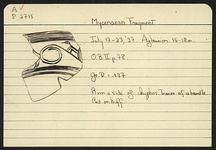 A
P 2715
Mycenaean Fragment
July 17-23, '37 Aghannan 16-18m.
O.B. II p. 78
Gr. D = .137
Rim & side of skyphos. Trace of a handle.
Ptd. on buff